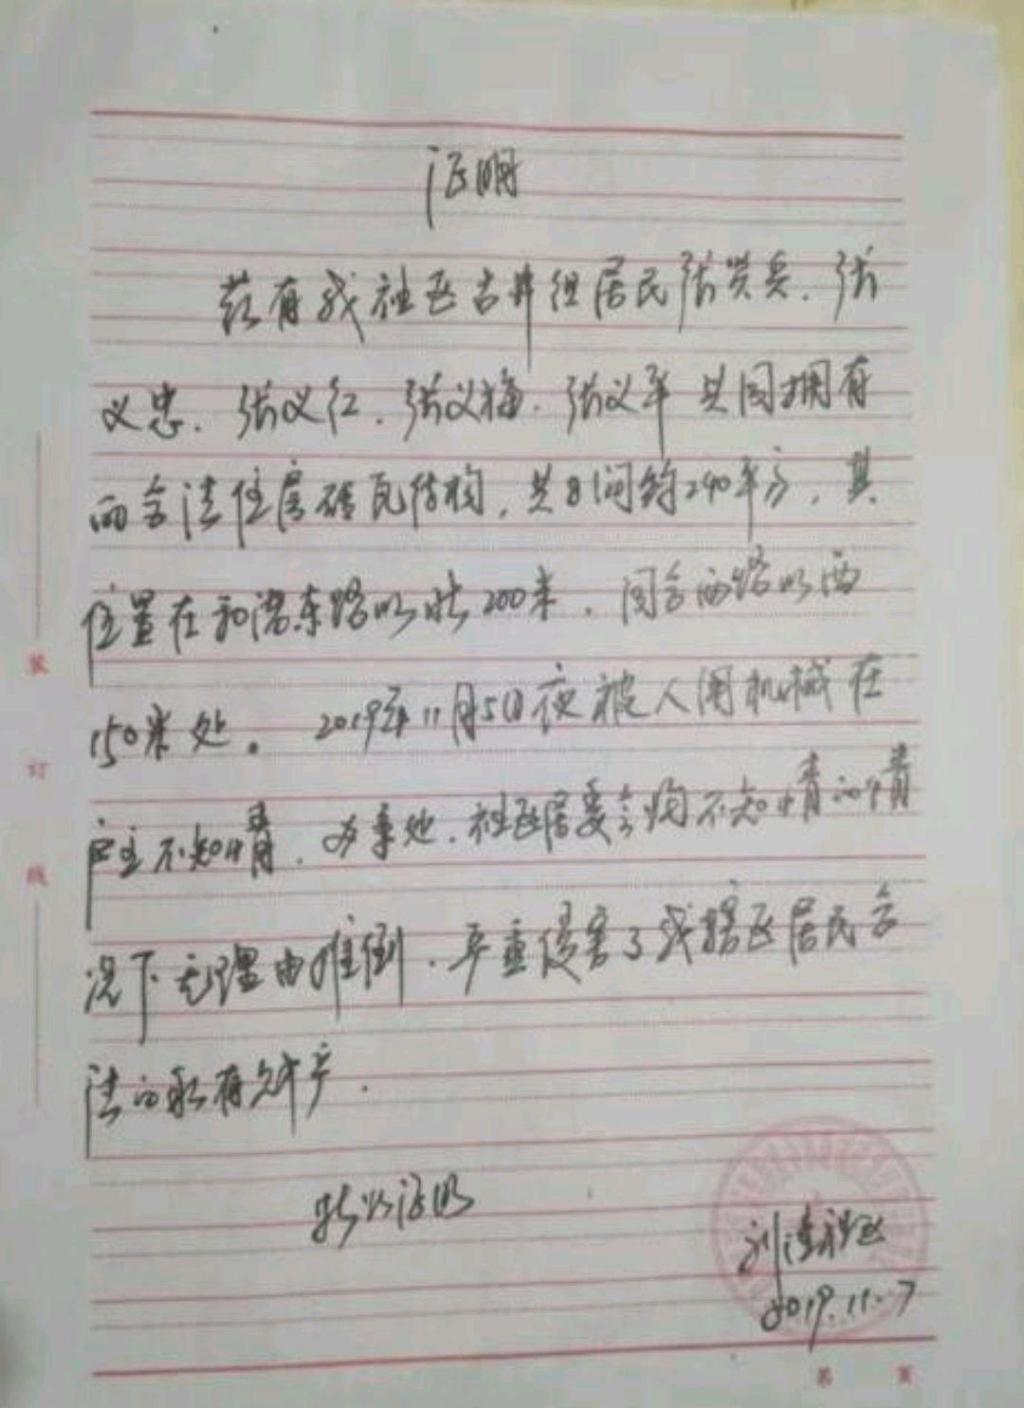 证明
兹有我社区古井组居民张贤兵、张
义忠、张义红、张义梅、张义平共同拥有
的合法住房砖瓦结构,共8间约240平方,其
位置在和谐东路以北200米,间合西路以西
150米处。2019年11月5日夜被人用机械在
户主不知情,办事处、社区居委会均不知情的情
况下无理由推倒,严重侵害了我辖区居民合
法的私有财产.
特此证明
刘湾社区
2019.11.7
装
订
线
第 页